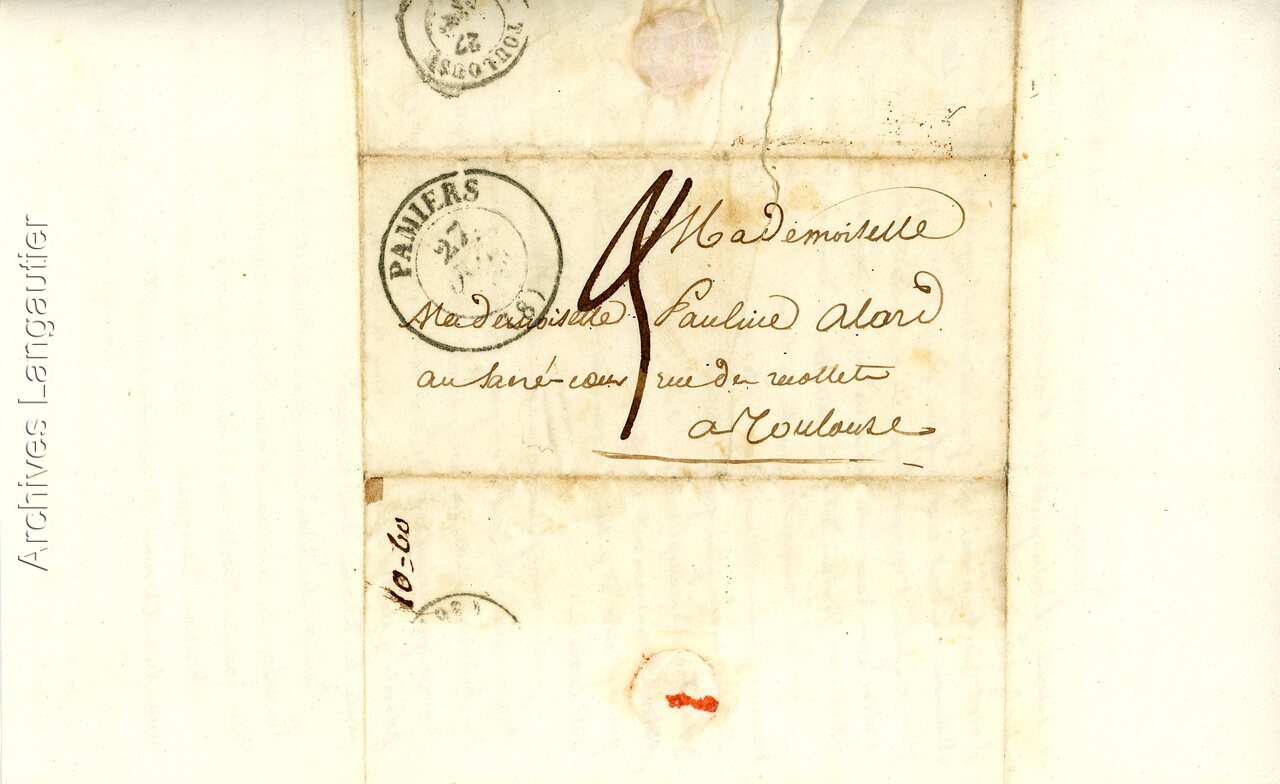 TOULOUSE
27
PAMIERS
27
(8)
Mademoiselle
Mademoiselle Pauline Alard
au Sacré-cœur rue du
a Toulouse
10=60
Archives Langautier